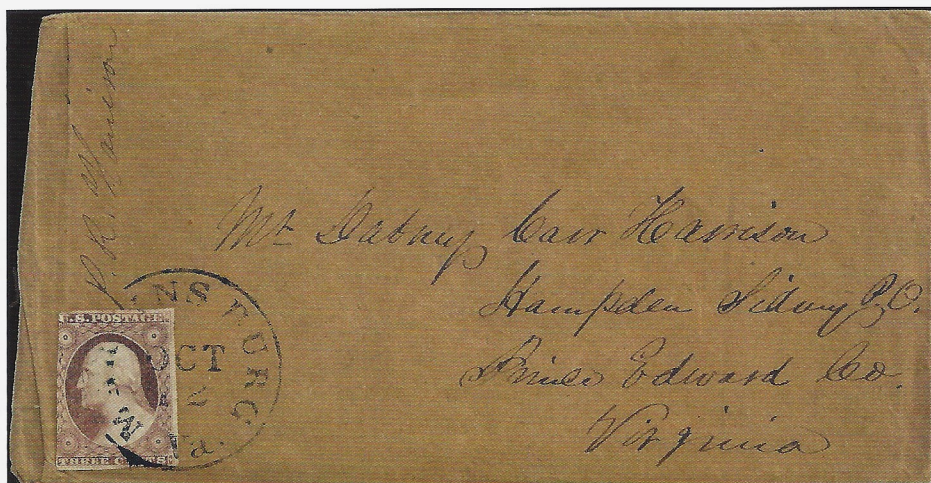 P. R. Harrison
Mr Dabney Carr Harrison
Hampden Sidney P.O.
Prince Edward Co.
Virginia
U.S. POSTAGE
THREE CENTS
OCT
2
Va.